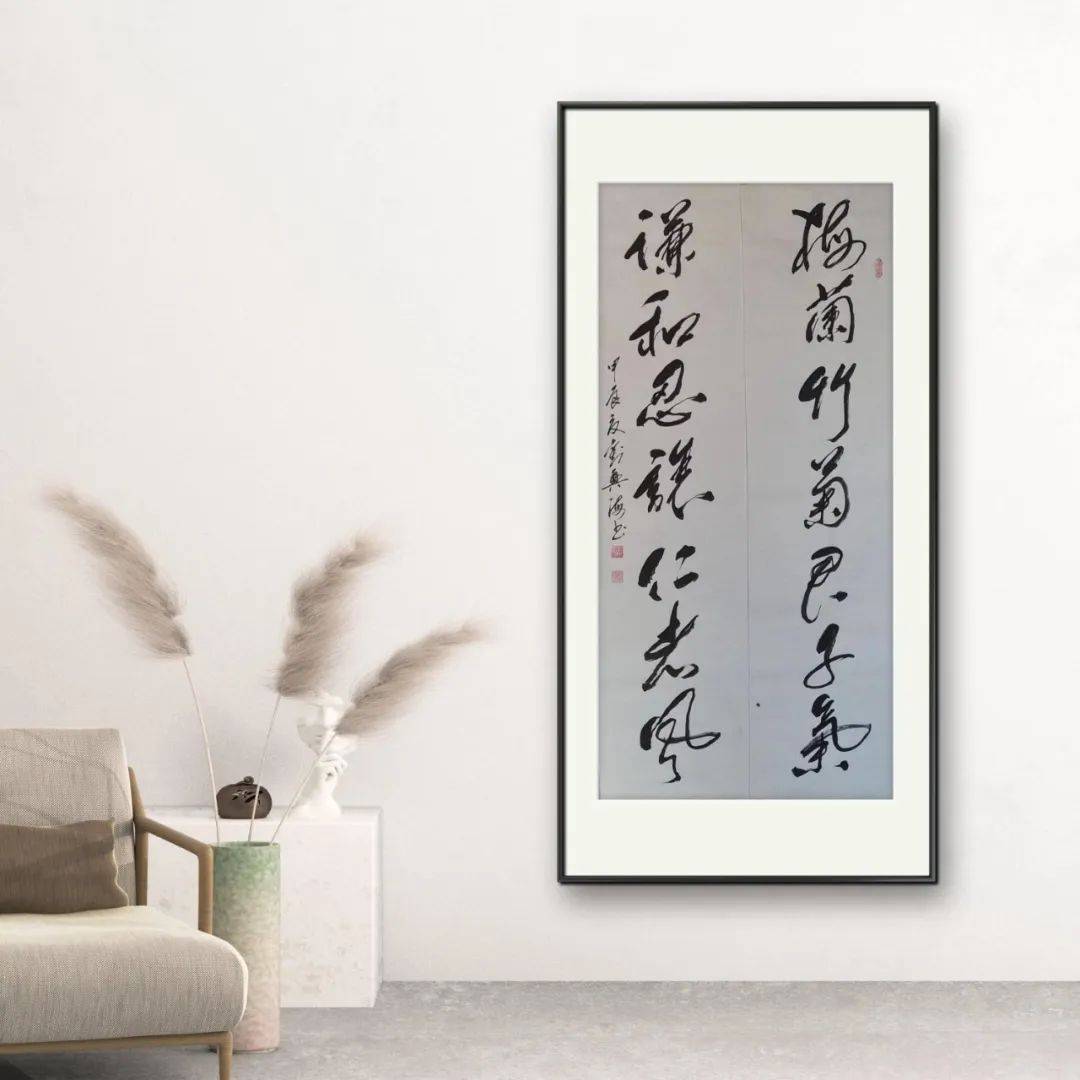 梅蘭竹菊君子氣
謙和忍讓仁者風
甲辰夏劉興海书